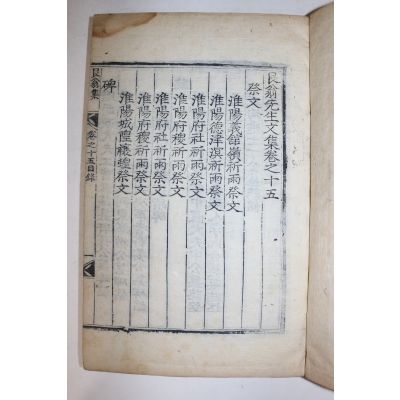 艮翁先生文集卷之十五
祭文
淮陽義舘嶺祈雨祭文
淮陽德津溟祈雨祭文
淮陽府社祈雨祭文
淮陽府稷祈雨祭文
淮陽府社祈雨祭文
淮陽府稷祈雨祭文
淮陽城隍禳蝗祭文
碑
艮翁集
卷之十五目錄
一